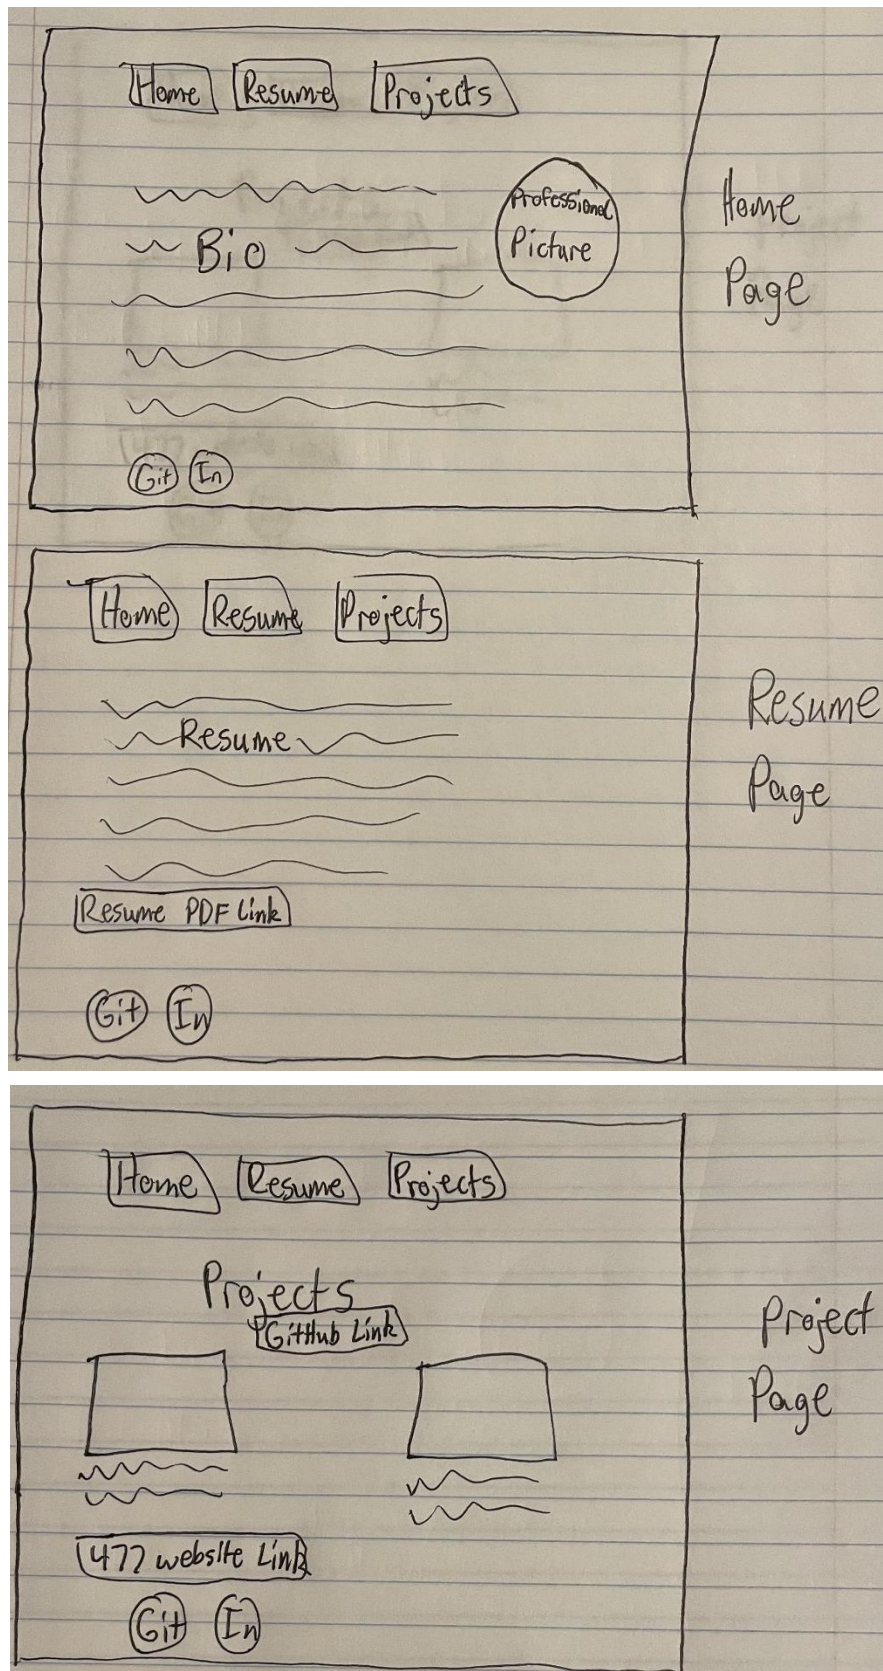 Home Resume Projects
Professional
Picture
Bio
Git In
Home
Page
Home Resume Projects
Resume
Resume PDF Link
Git In
Resume
Page
Home Resume Projects
Projects
GitHub Link
477 website Link
Git In
Project
Page